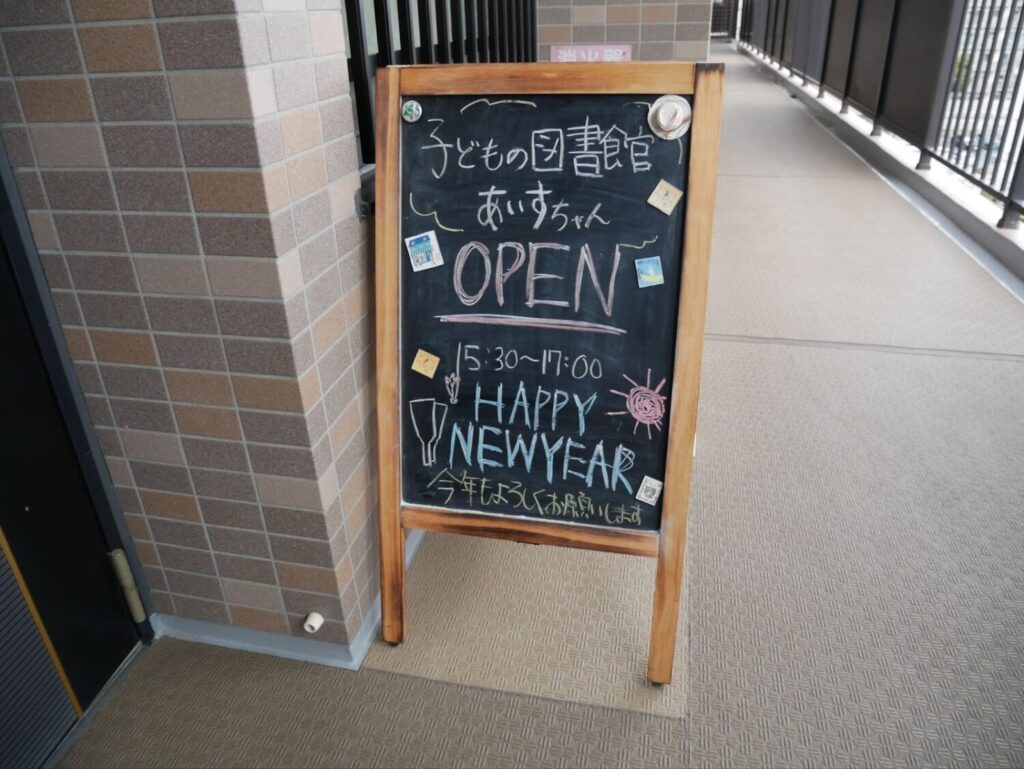 消火器
子どもの図書館
あいすちゃん
OPEN
15:30~17:00
HAPPY
NEWYEAR
今年もよろしくお願いします